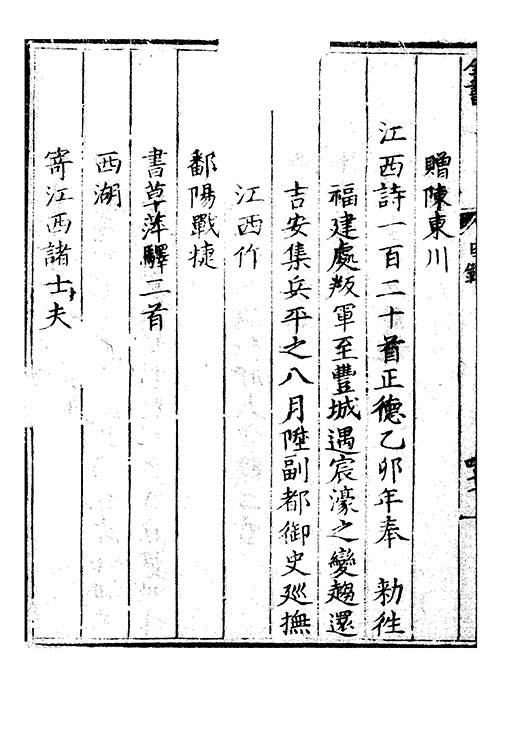 贈陳東川
江西詩一百二十首正德乙卯年奉 勑徃
福建處叛軍至豐城遇宸濠之變趨還
吉安集兵平之八月陞副都御史廵撫
江西作
鄱陽戰捷
書草萍驛二首
西湖
寄江西諸士夫